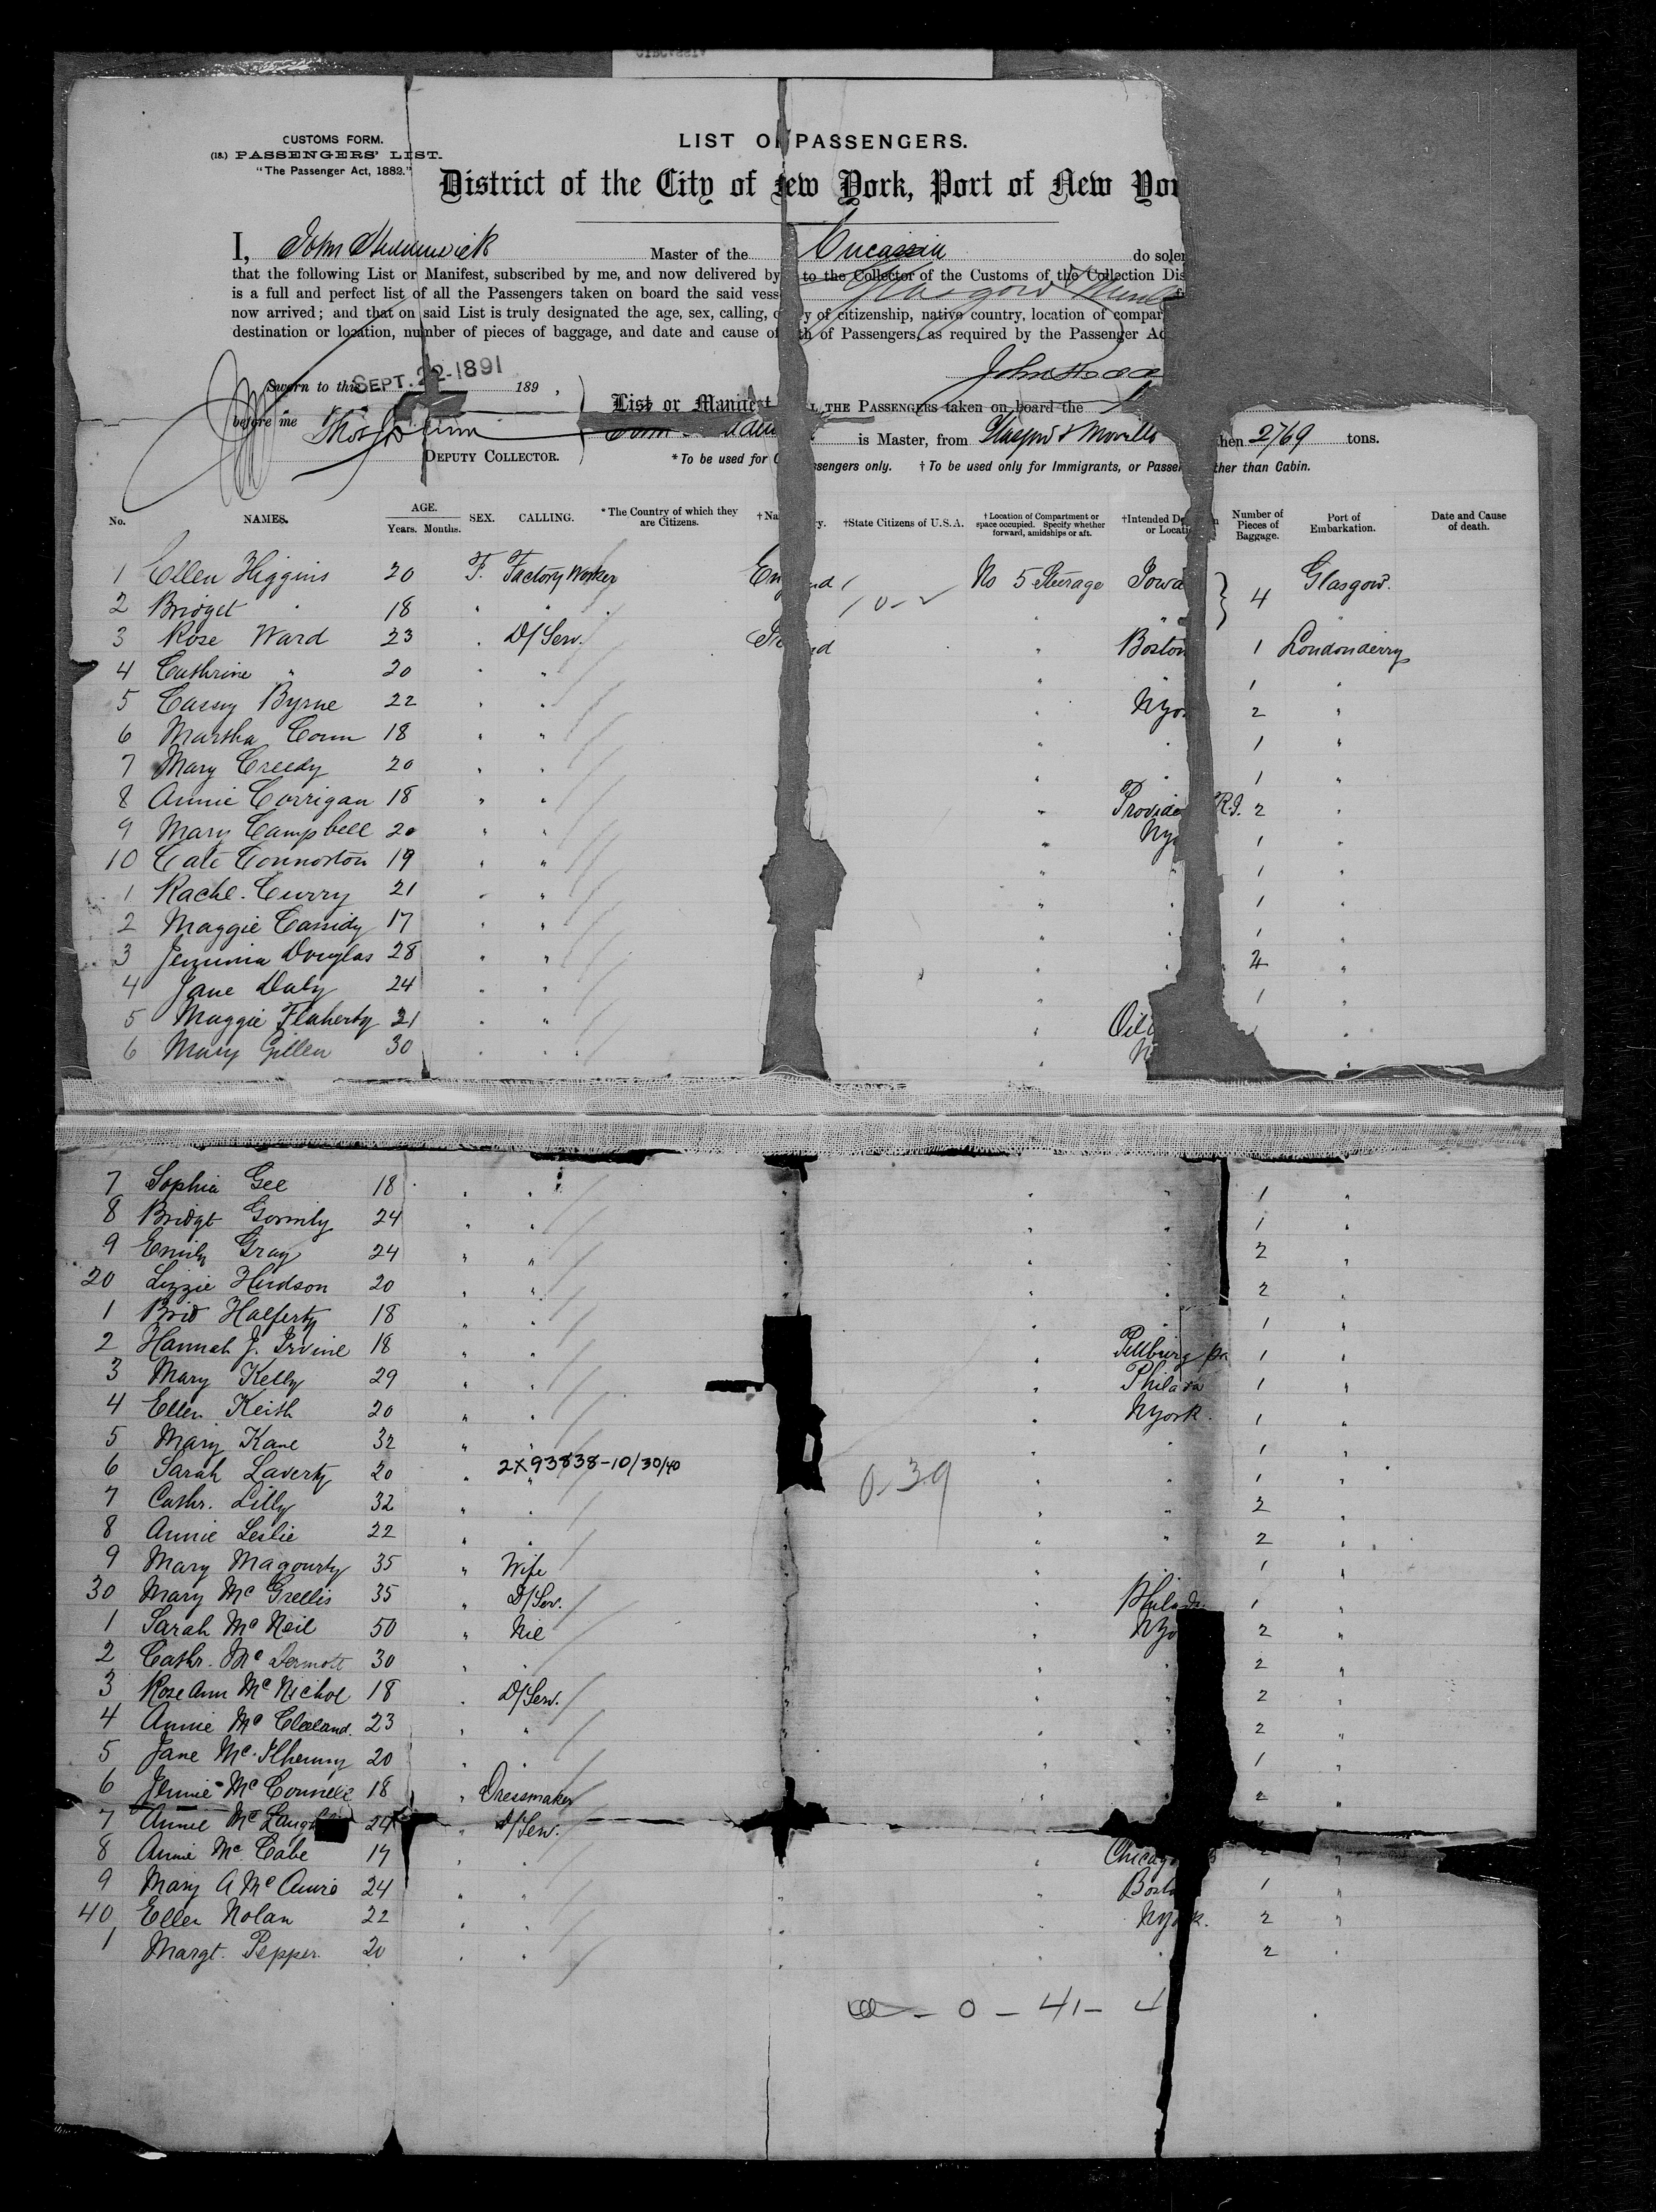 CUSTOMS FORM.
(18.) PASSENGERS' LIST.
"The Passenger Act, 1882."
LIST OF PASSENGERS.
District of the City of New York, Port of New Yor
I, John Master of the Circassia do solem
that the following List or Manifest, subscribed by me, and now delivered by to the Collector of the Customs of the Collection Dis
is a full and perfect list of all the Passengers taken on board the said vess Glasgow
now arrived; and that on said List is truly designated the age, sex, calling, c y of citizenship, native country, location of compar
destination or location, number of pieces of baggage, and date and cause of th of Passengers, as required by the Passenger Ac
Sworn to this SEPT. 22-1891 189 ,
before me
DEPUTY COLLECTOR.
List or Manifest L THE PASSENGERS taken on board the
is Master, from Glasgow & Moville then 2769 tons.
*To be used for C ssengers only. †To be used only for Immigrants, or Passen ther than Cabin.
No. NAMES. AGE. Years. Months. SEX. CALLING. *The Country of which they are Citizens. †Na y. †State Citizens of U.S.A. †Location of Compartment or space occupied. Specify whether forward, amidships or aft. †Intended De n or Locati Number of Pieces of Baggage. Port of Embarkation. Date and Cause of death.
1 Ellen Higgins 20 F. Factory Worker England No 5 Steerage Iowa 4 Glasgow.
2 Bridget " 18 " " " "
3 Rose Ward 23 " D/Serv. Ireland " Boston 1 Londonderry
4 Cathrine " 20 " " " " 1 "
5 Cassy Byrne 22 " " " NYor 2 "
6 Martha Conn 18 " " " " 1 "
7 Mary Creedy 20 " " " " 1 "
8 Annie Corrigan 18 " " " Provide R.I. 2 "
9 Mary Campbell 20 " " " NYo 1 "
10 Cate Connorton 19 " " " " 1 "
1 Rachl. Curry 21 " " " " 1 "
2 Maggie Cassidy 17 " " " " 1 "
3 Jemima Douglas 28 " " " " 2 "
4 Jane Daly 24 " " " " 1 "
5 Maggie Flaherty 21 " " " Oil "
6 Mary Gillen 30 " " " N "
7 Sophia Gee 18 " " " " " 1 "
8 Bridgt Gormly 24 " " " " " 1 "
9 Emily Gray 24 " " " " " 2 "
20 Lizzie Hudson 20 " " " " " 2 "
1 Brid Halferty 18 " " " " 1 "
2 Hannah J. Irvine 18 " " " Pittburg Pa 1 "
3 Mary Kelly 29 " " " Philada 1 "
4 Ellen Keith 20 " " " NYork. 1 "
5 Mary Kane 32 " " " " 1 "
6 Sarah Laverty 20 " 2X93838-10/30/40 " " 1 "
0-39
7 Cathr. Lilly 32 " " " " " 2 "
8 Annie Leslie 22 " " " " " 2 "
9 Mary Magourty 35 " Wife " " " 1 "
30 Mary McGrellis 35 " D/Serv. " " Philada 1 "
1 Sarah McNeil 50 " Nil " " NYo 2 "
2 Cathr. McDermott 30 " " " " " 2 "
3 Rose Ann McNichol 18 " D/Serv. " " " 2 "
4 Annie McCleland. 23 " " " " " 2 "
5 Jane McIlhenny 20 " " " " " 1 "
6 Jennie McConnell 18 " Dressmaker " " " 2 "
7 Annie McLaugh 24 " D/Serv.
8 Annie McCabe 19 " " " " Chicag "
9 Mary A McCurrie 24 " " " " Bosto 1 "
40 Ellen Nolan 22 " " " " NYork. 2 "
1 Margt. Pepper. 20 " " " " " 2 "
0 - 41 - 4